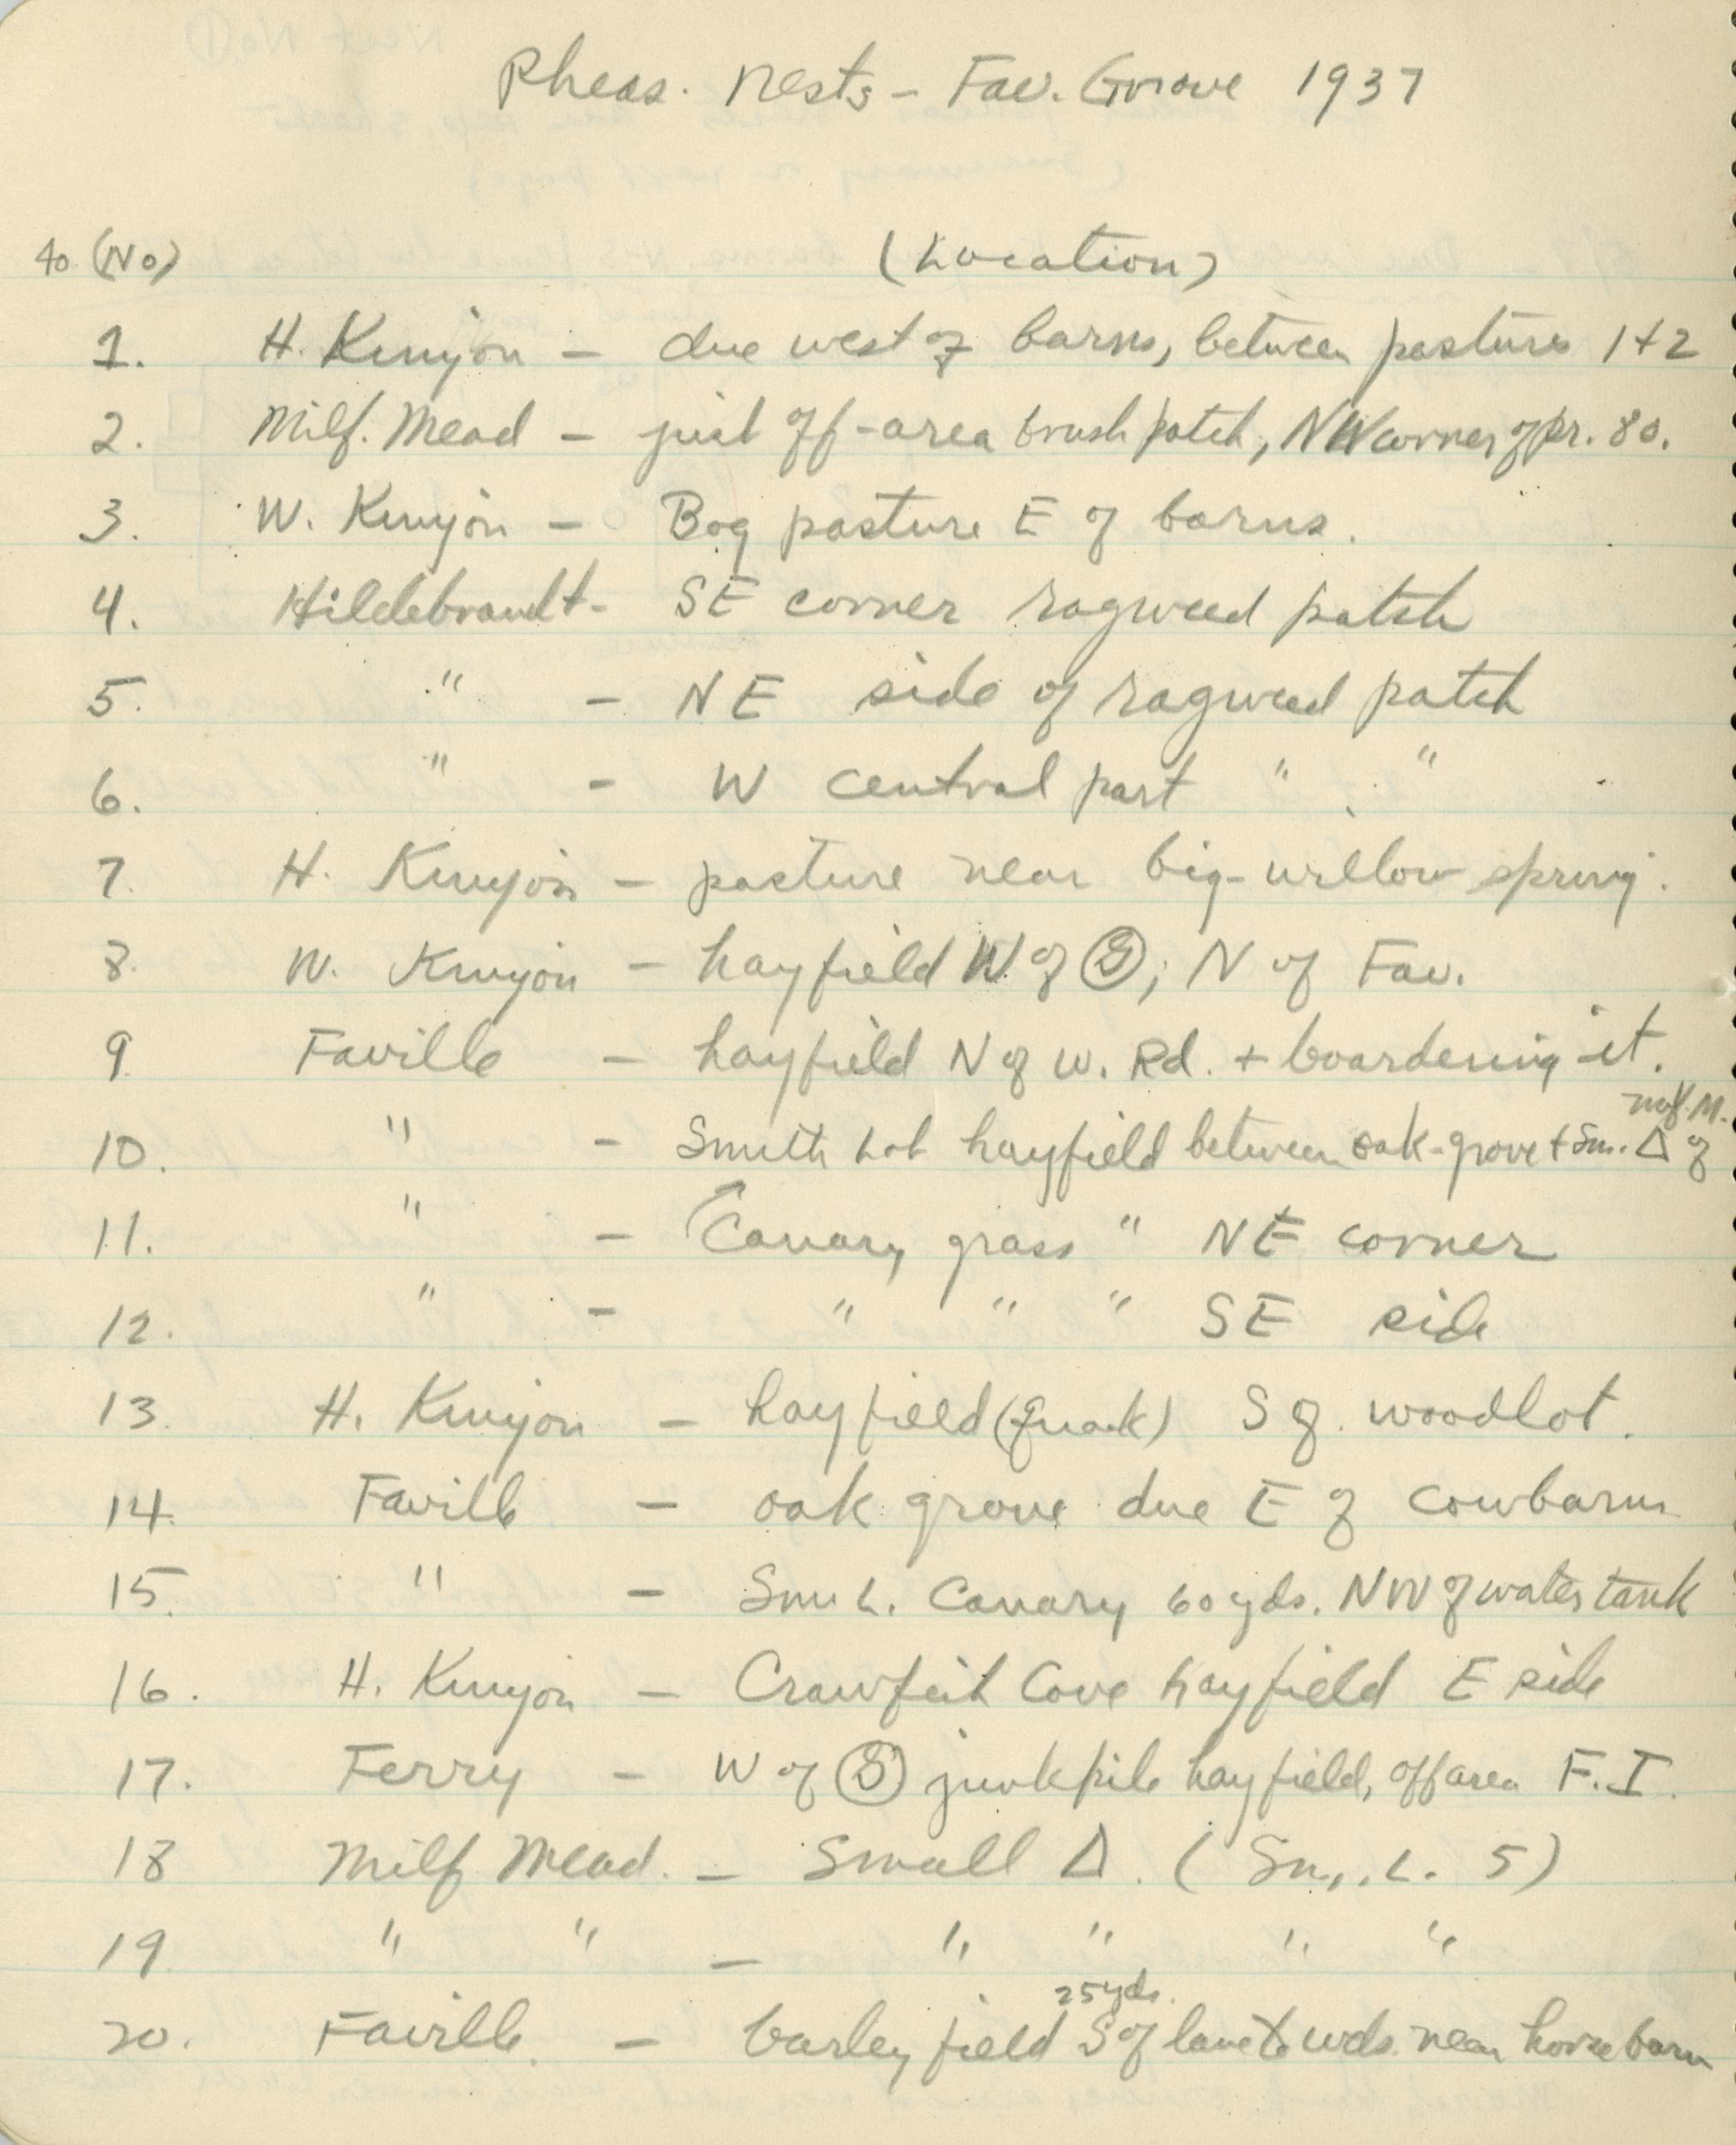 Pheas. Nests - Fav. Grove 1937
40 (No) (Location)
1. H. Kinyon - due west of barns, between pastures 1+2
2. Milf. Mead - just off-area brush patch, NW corner of pr. 80.
3. W. Kinyon - Bog pasture E of barns.
4. Hildebrandt - SE corner ragweed patch
5. " - NE side of ragweed patch
6. " - W central part " "
7. H. Kinyon - pasture near big-willow spring.
8. W. Kinyon - hayfield W of Ⓢ; N of Fav.
9. Faville - hayfield N of W. Rd. + boardering it.
10. " - Smith Lot hayfield between oak-grove + Sm. Δ of M.
11. " - Canary grass " NE corner
12. " - " " " SE side
13. H. Kinyon - hayfield (Quack) S of woodlot.
14. Faville - oak grove due E of cowbarn
15. " - Sm. L. Canary 60 yds. NW of water tank
16. H. Kinyon - Crawfish Cove hayfield E side
17. Ferry - W of Ⓢ junkpile hayfield, off area F.I.
18 Milf Mead. - Small Δ. (Sm. L. 5)
19 " " - " " " "
25 yds.
20. Faville. - barley field S of lane to wds. near horse barn